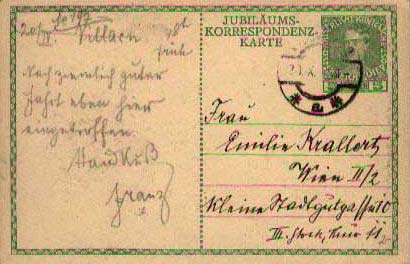 Villach
früh
Nach ziemlich guter
Fahrt eben hier
eingetroffen.
Handkuß
Franz
JUBILÄUMS-
KORRESPONDENZ-
KARTE
Frau
Emilie Krallert
Wien II/2
Kleine Stadtgutgasse 10
III. Stock, Tür 11